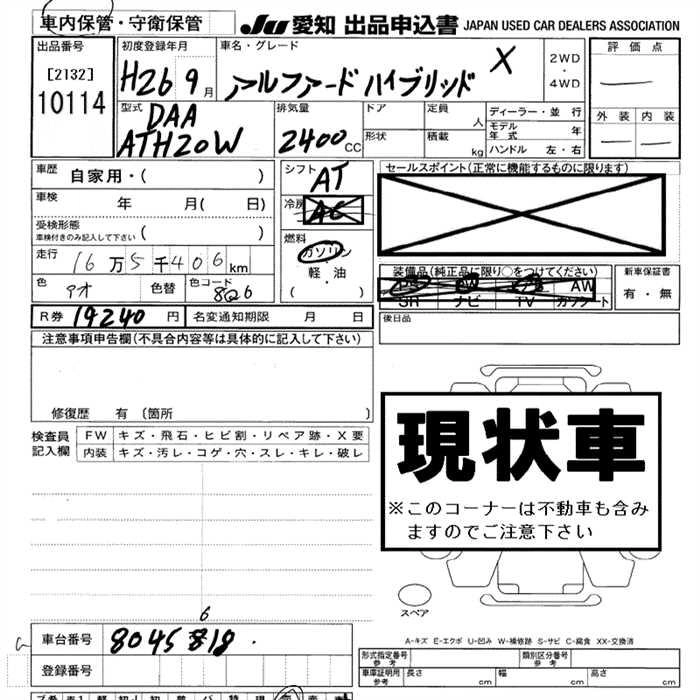 車内保管・守衛保管
JU 愛知 出品申込書 JAPAN USED CAR DEALERS ASSOCIATION
出品番号
[2132]
10114
初度登録年月
H26 9月
車名・グレード
アルファード ハイブリッド X
2WD
・
4WD
評価点
外装 内装
型式
DAA
ATH20W
排気量
2400 CC
ドア
形状
定員 人
積載 kg
ディーラー・並行
モデル年式 年
ハンドル 左・右
車歴
自家用・( )
車検
年 月( 日)
受検形態
車検付きのみ記入して下さい ( )
走行
16万5千406km
色
アオ
色替
色コード
8Q6
シフト
AT
冷房
AC
燃料
ガソリン
・
軽・油
( )
セールスポイント(正常に機能するものに限ります)
装備品(純正品に限り○をつけてください)
AW
SR ナビ TV カワシート
新車保証書
有・無
R券 19240 円
名変通知期限 月 日
後日品
注意事項申告欄(不具合内容等は具体的に記入して下さい)
修復歴 有 〔箇所 〕
検査員記入欄
FW キズ・飛石・ヒビ割・リペア跡・X要
内装 キズ・汚レ・コゲ・穴・スレ・キレ・破レ
現状車
※このコーナーは不動車も含み
ますのでご注意下さい
スペア
6
車台番号
8045818
登録番号
A-キズ E-エクボ U-凹み W-補修跡 S-サビ C-腐食 XX-交換済
形式指定番号
参考
類別区分番号
参考
車庫証明用
参考
長さ cm
幅 cm
高さ cm